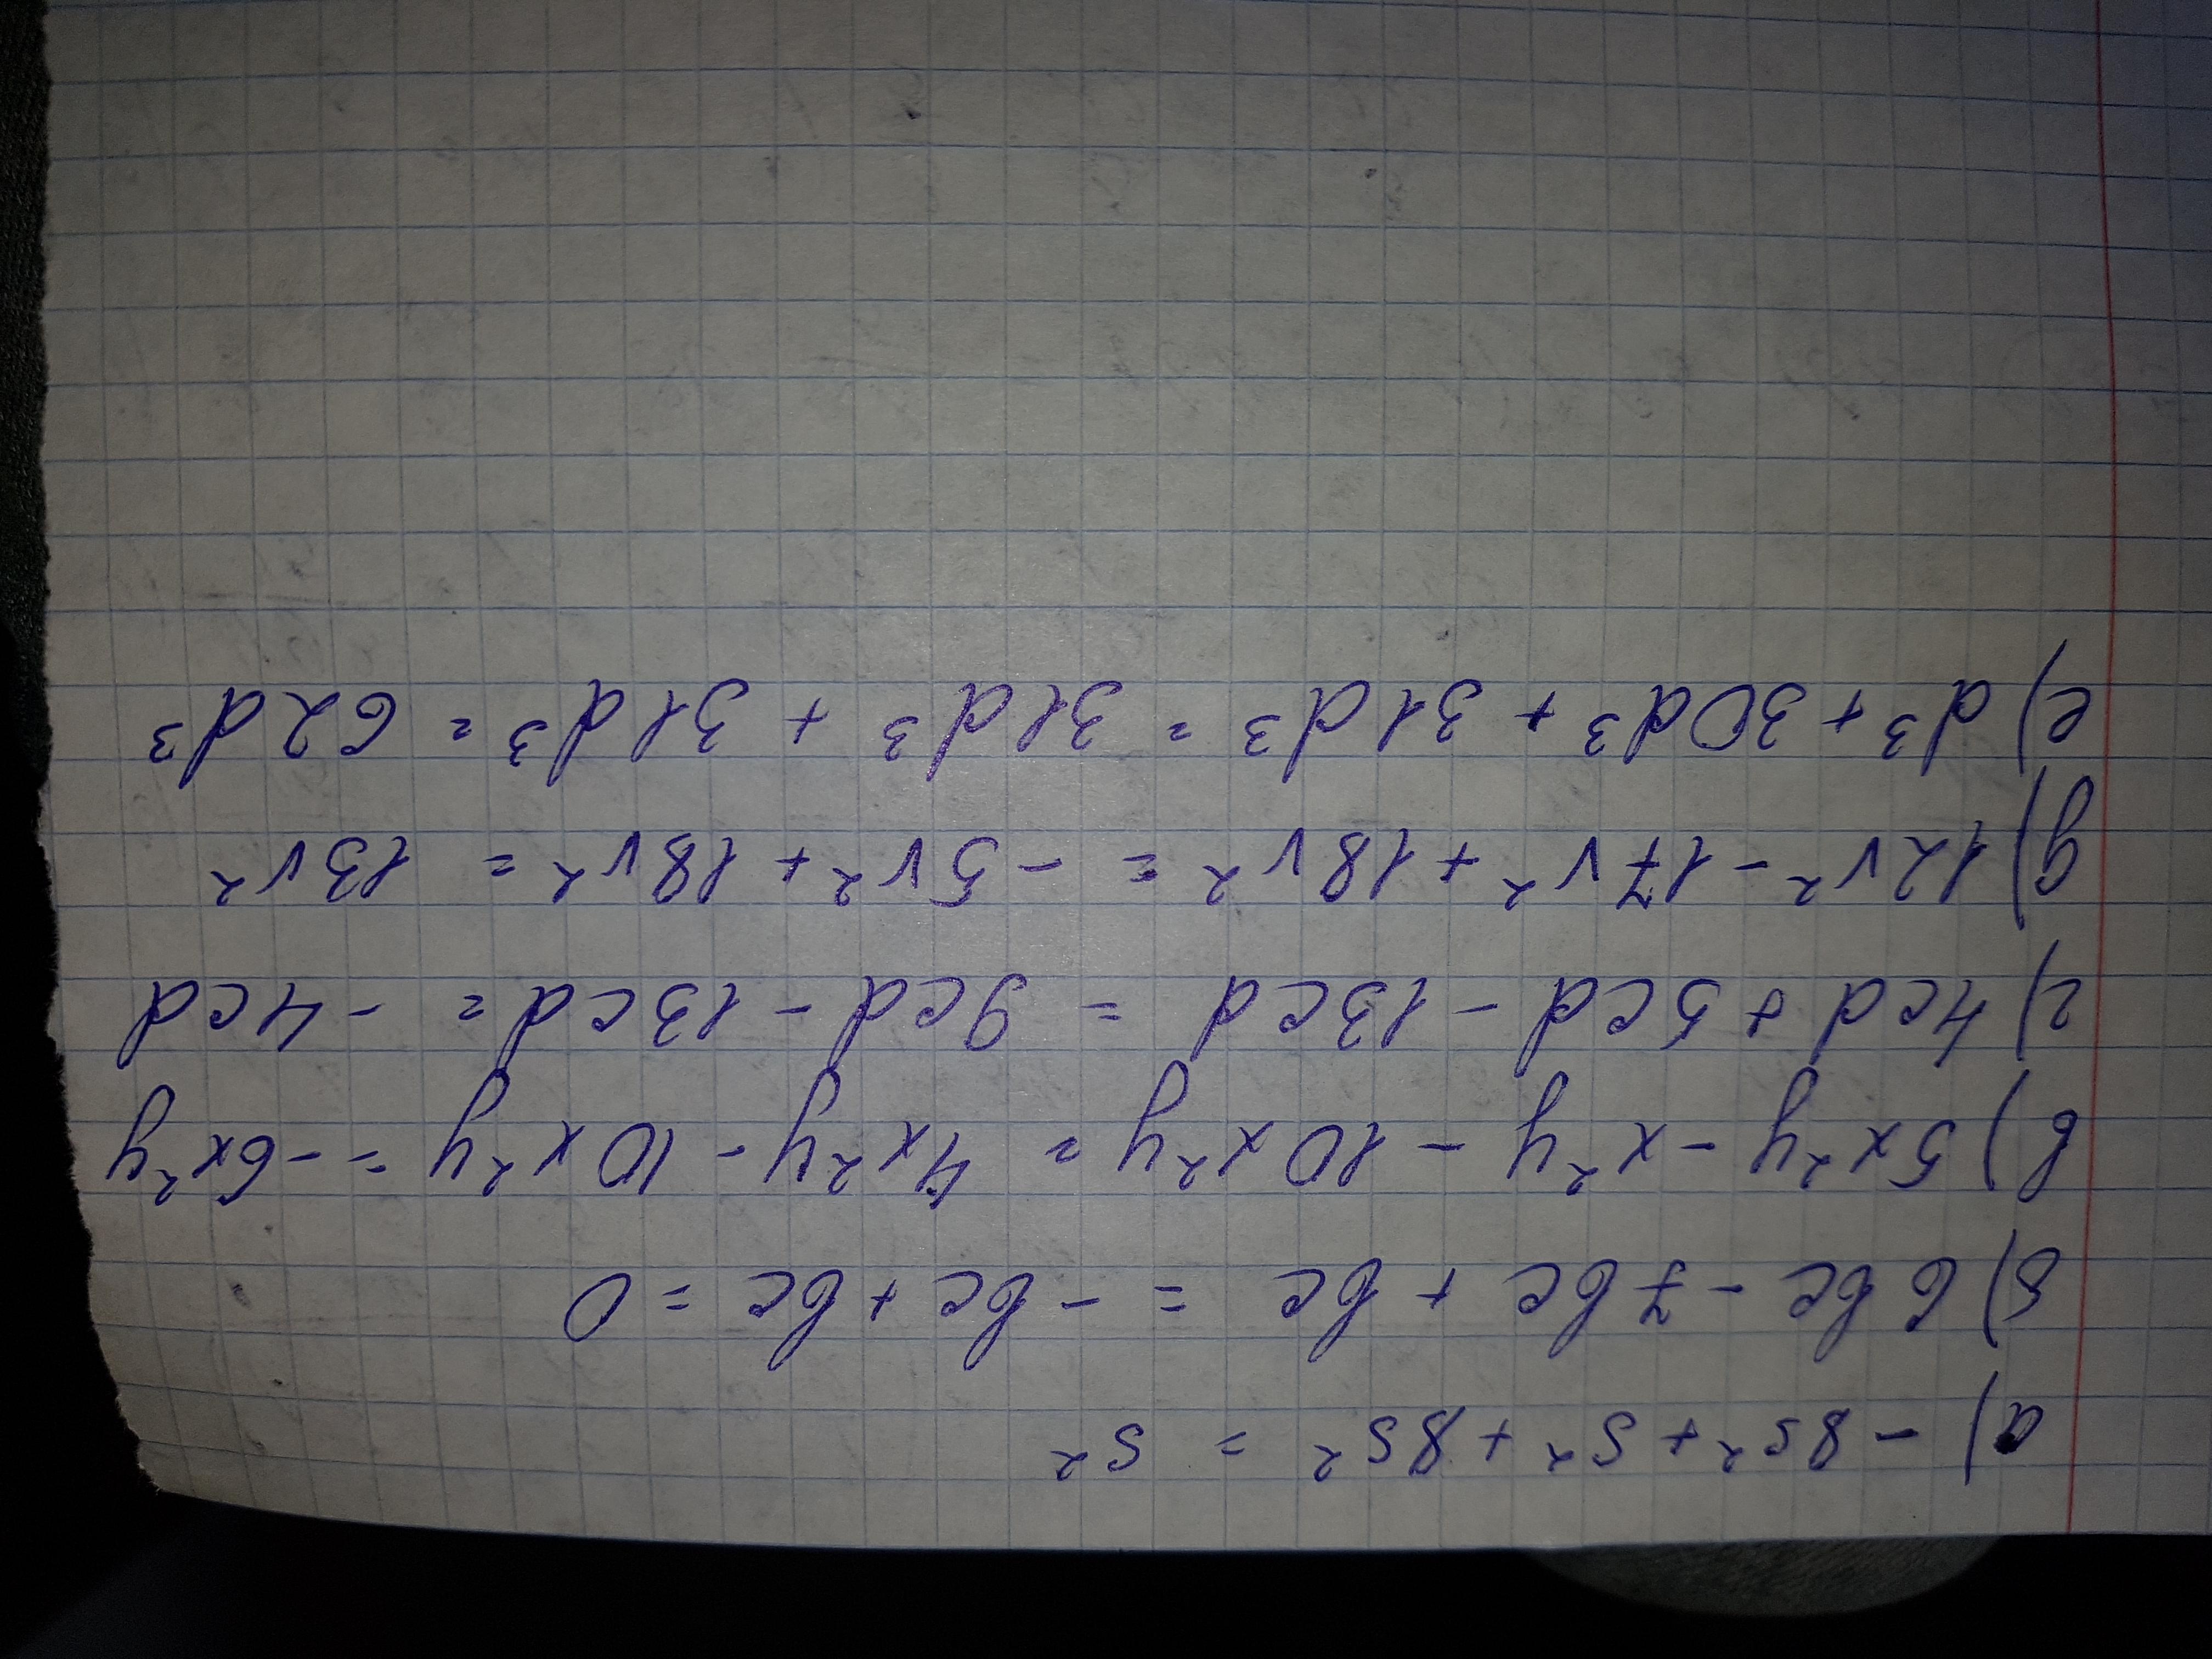 а) -8s² + s² + 8s² = s²
б) 6bc - 7bc + bc = -bc + bc = 0
в) 5x²y - x²y - 10x²y = 4x²y - 10x²y = -6x²y
г) 4cd + 5cd - 13cd = 9cd - 13cd = -4cd
д) 12v² - 17v² + 18v² = -5v² + 18v² = 13v²
е) d³ + 30d³ + 31d³ = 31d³ + 31d³ = 62d³